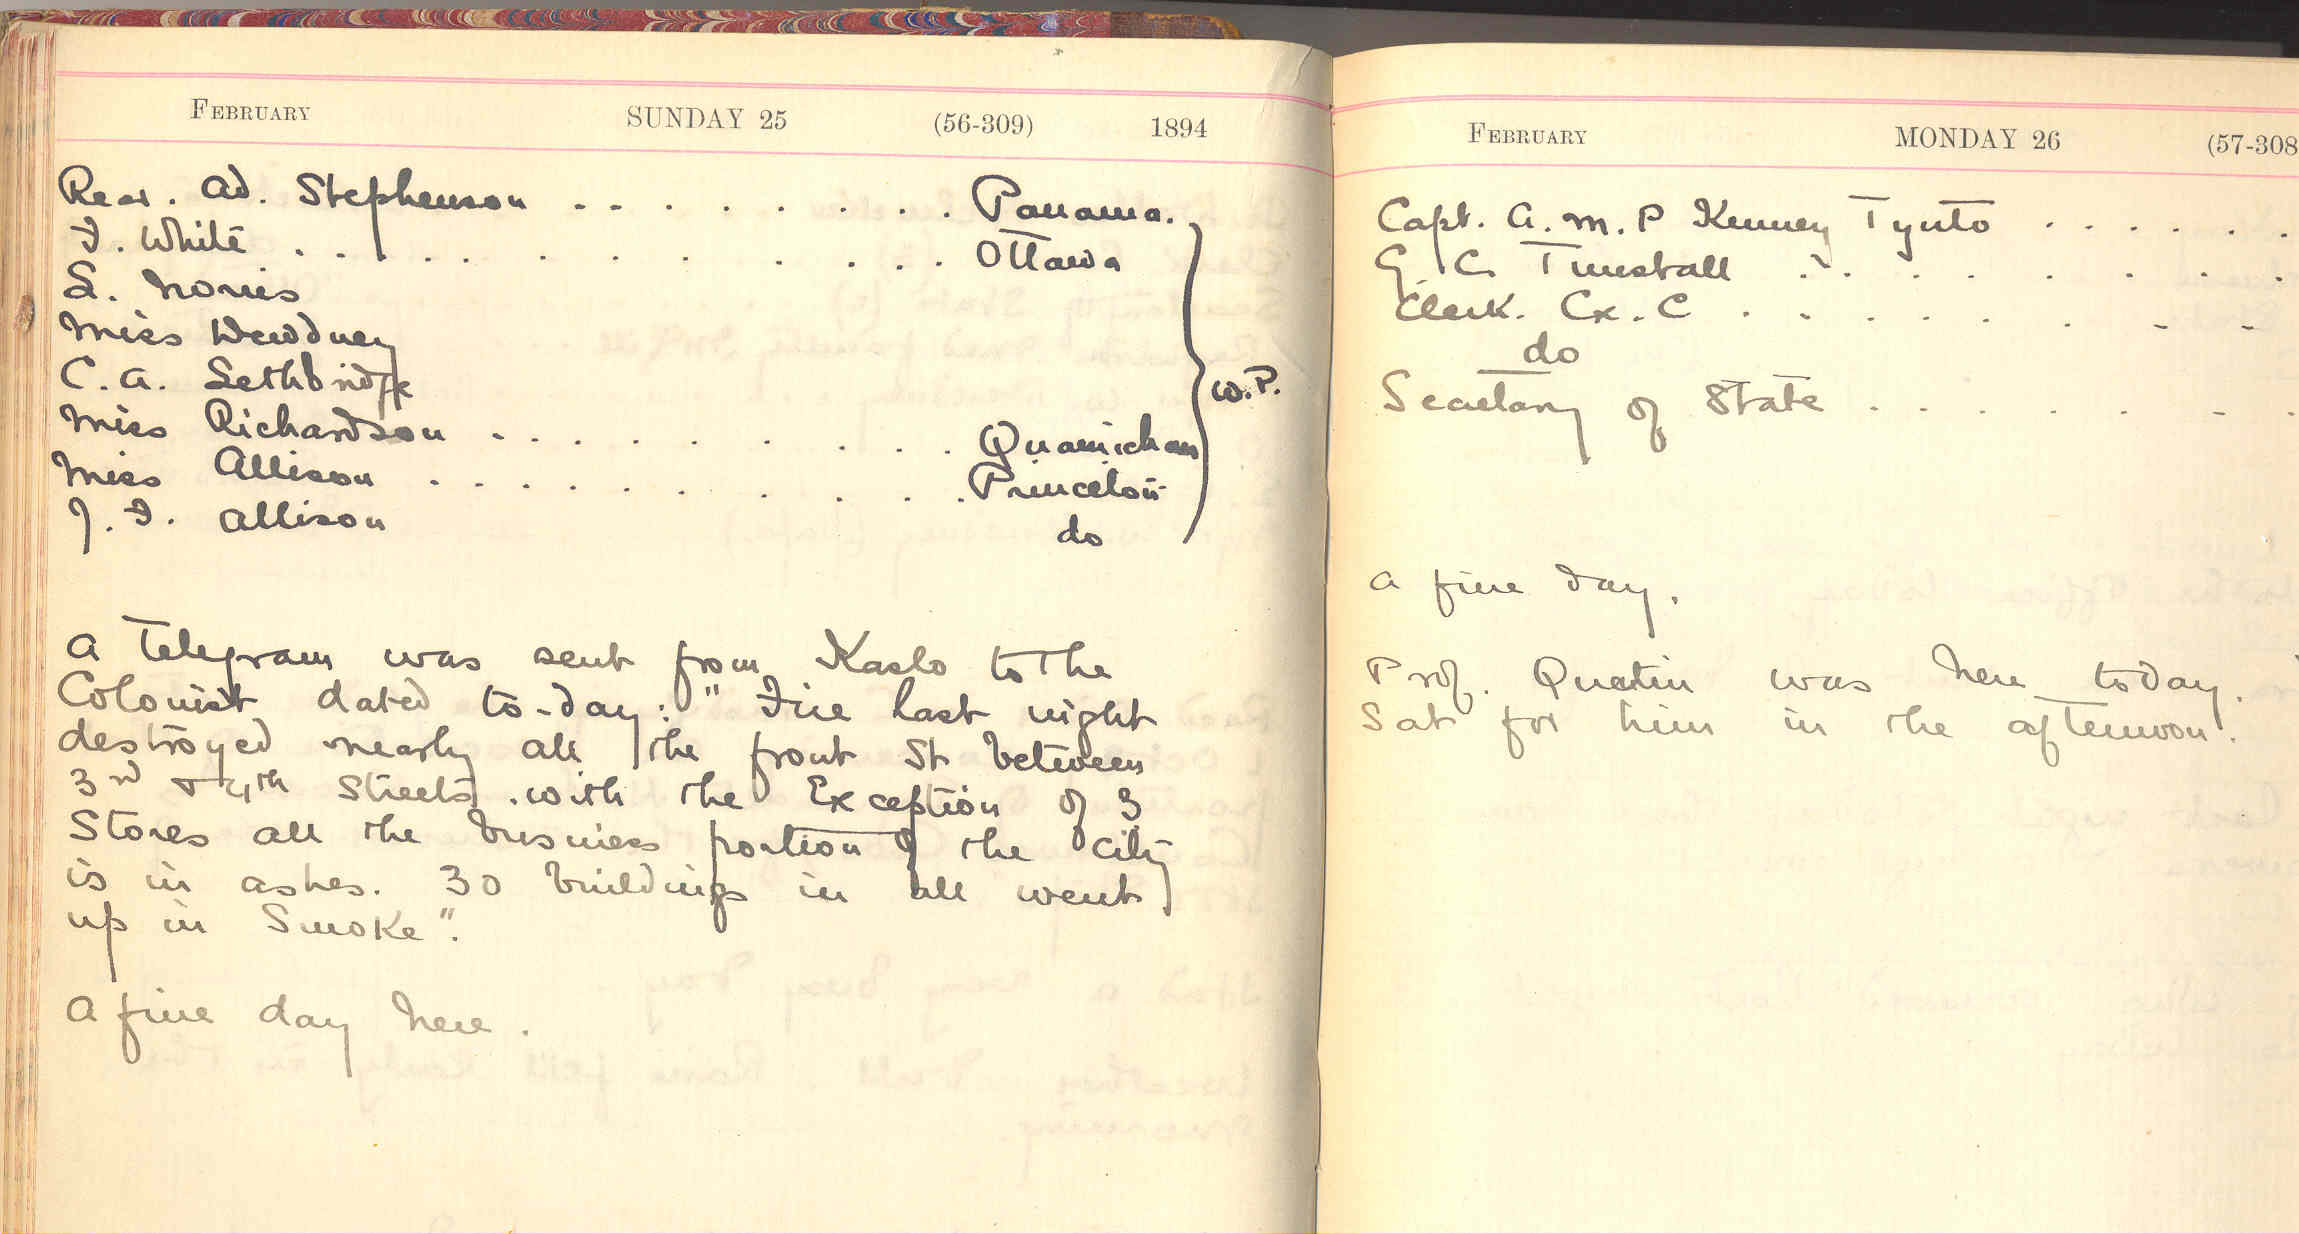 FEBRUARY SUNDAY 25 (56-309) 1894
Rear. Ad. Stephenson . . . . . . . . . Panama.
F. White . . . . . . . . . . . . Ottawa
L. Norris
Miss Dewdney
C. A. Lethbridge
W.P.
Miss Richardson . . . . . . . . . Quamichan
Miss Allison . . . . . . . . . . Princeton
J. F. Allison do
A Telegram was sent from Kaslo to the
Colonist dated to-day: "Fire last night
destroyed nearly all the front St between
3rd & 4th Streets. with the Exception of 3
Stores all the business portion of the city
is in ashes. 30 buildings in all went
up in Smoke".
A fine day here.
FEBRUARY MONDAY 26 (57-308
Capt. A. M. P Kenney Tynto . . . . . .
G. C. Tunstall . . . . . . . . .
Clerk. Ex. C . . . . . . . . .
do
Secretary of State . . . . . . . .
A fine day.
Prof. was here today.
Sat for him in the afternoon.